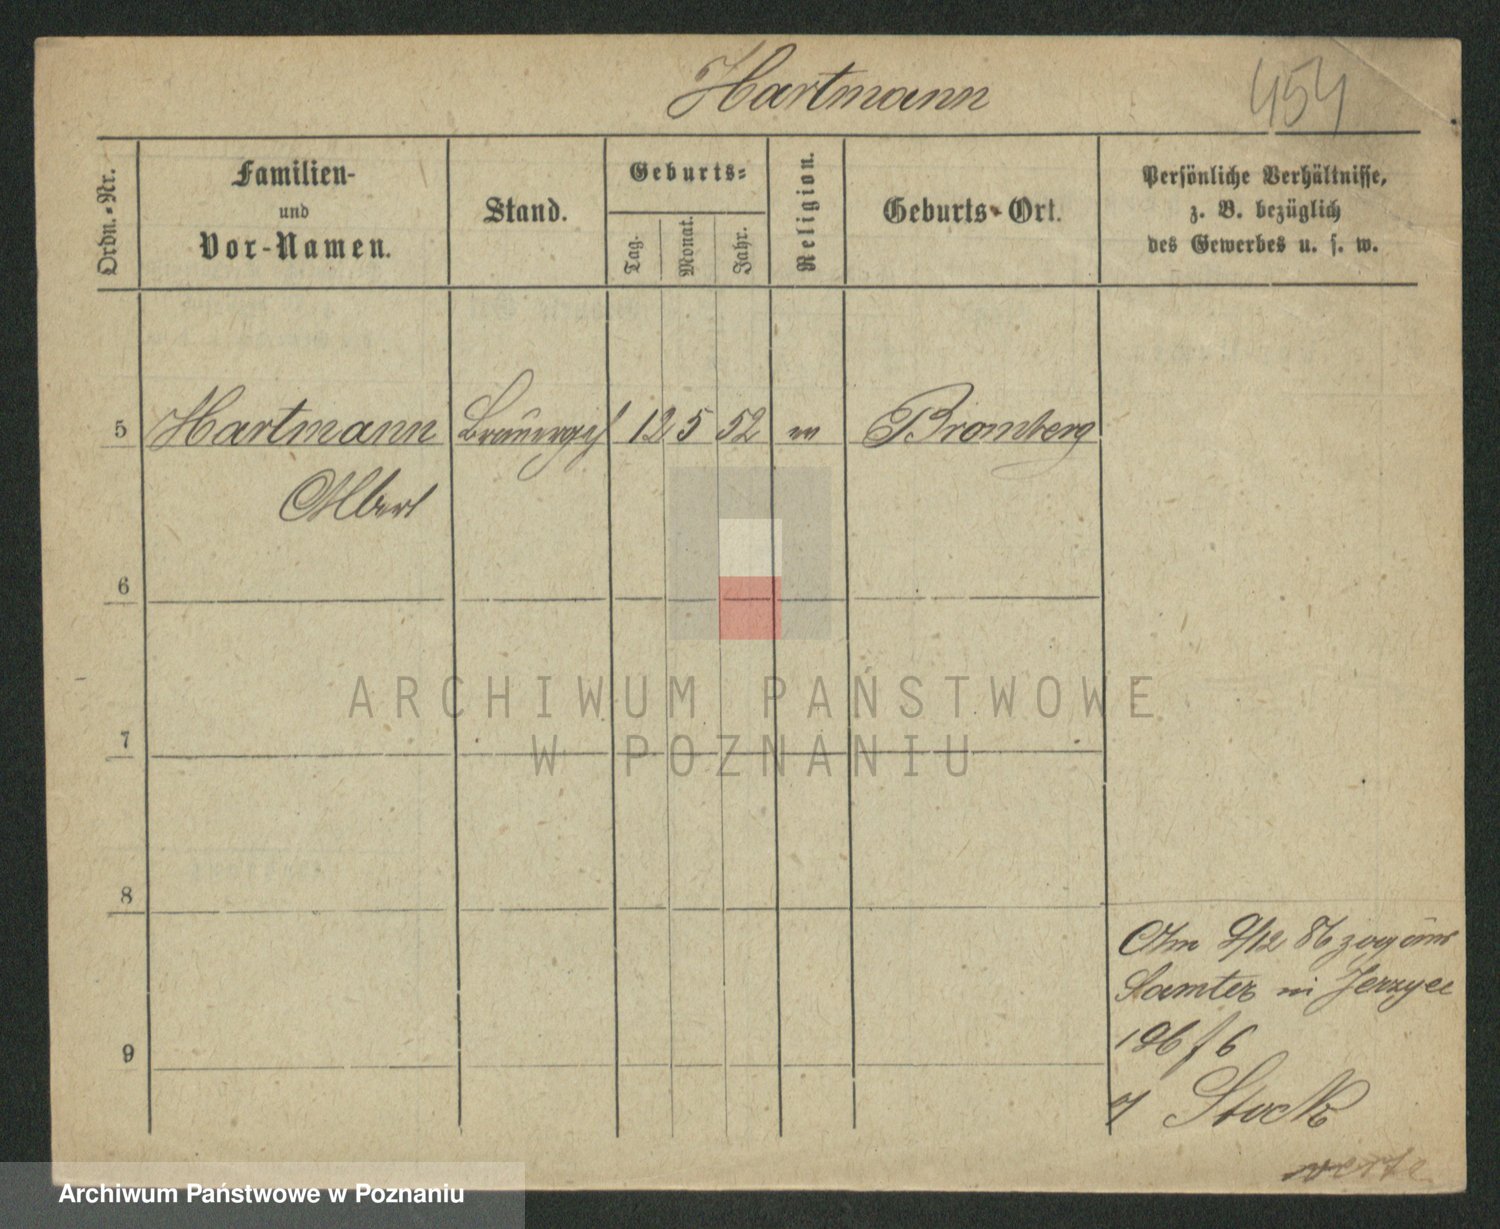 Hartmann
454
Ordn.-Nr.
Familien-
und
Vor-Namen.
Stand.
Geburts-
Tag.
Monat.
Jahr.
Religion.
Geburts-Ort.
Persönliche Verhältnisse,
z. B. bezüglich
des Gewerbes u. s. w.
5 Hartmann Brauergeh 12 5 52 Bromberg
Albert
6
ARCHIWUM PAŃSTWOWE
W POZNANIU
7
8
Am 9/12 86 zog aus
Samter in Jerzyce
196 f 6
9
Stock
Archiwum Państwowe w Poznaniu